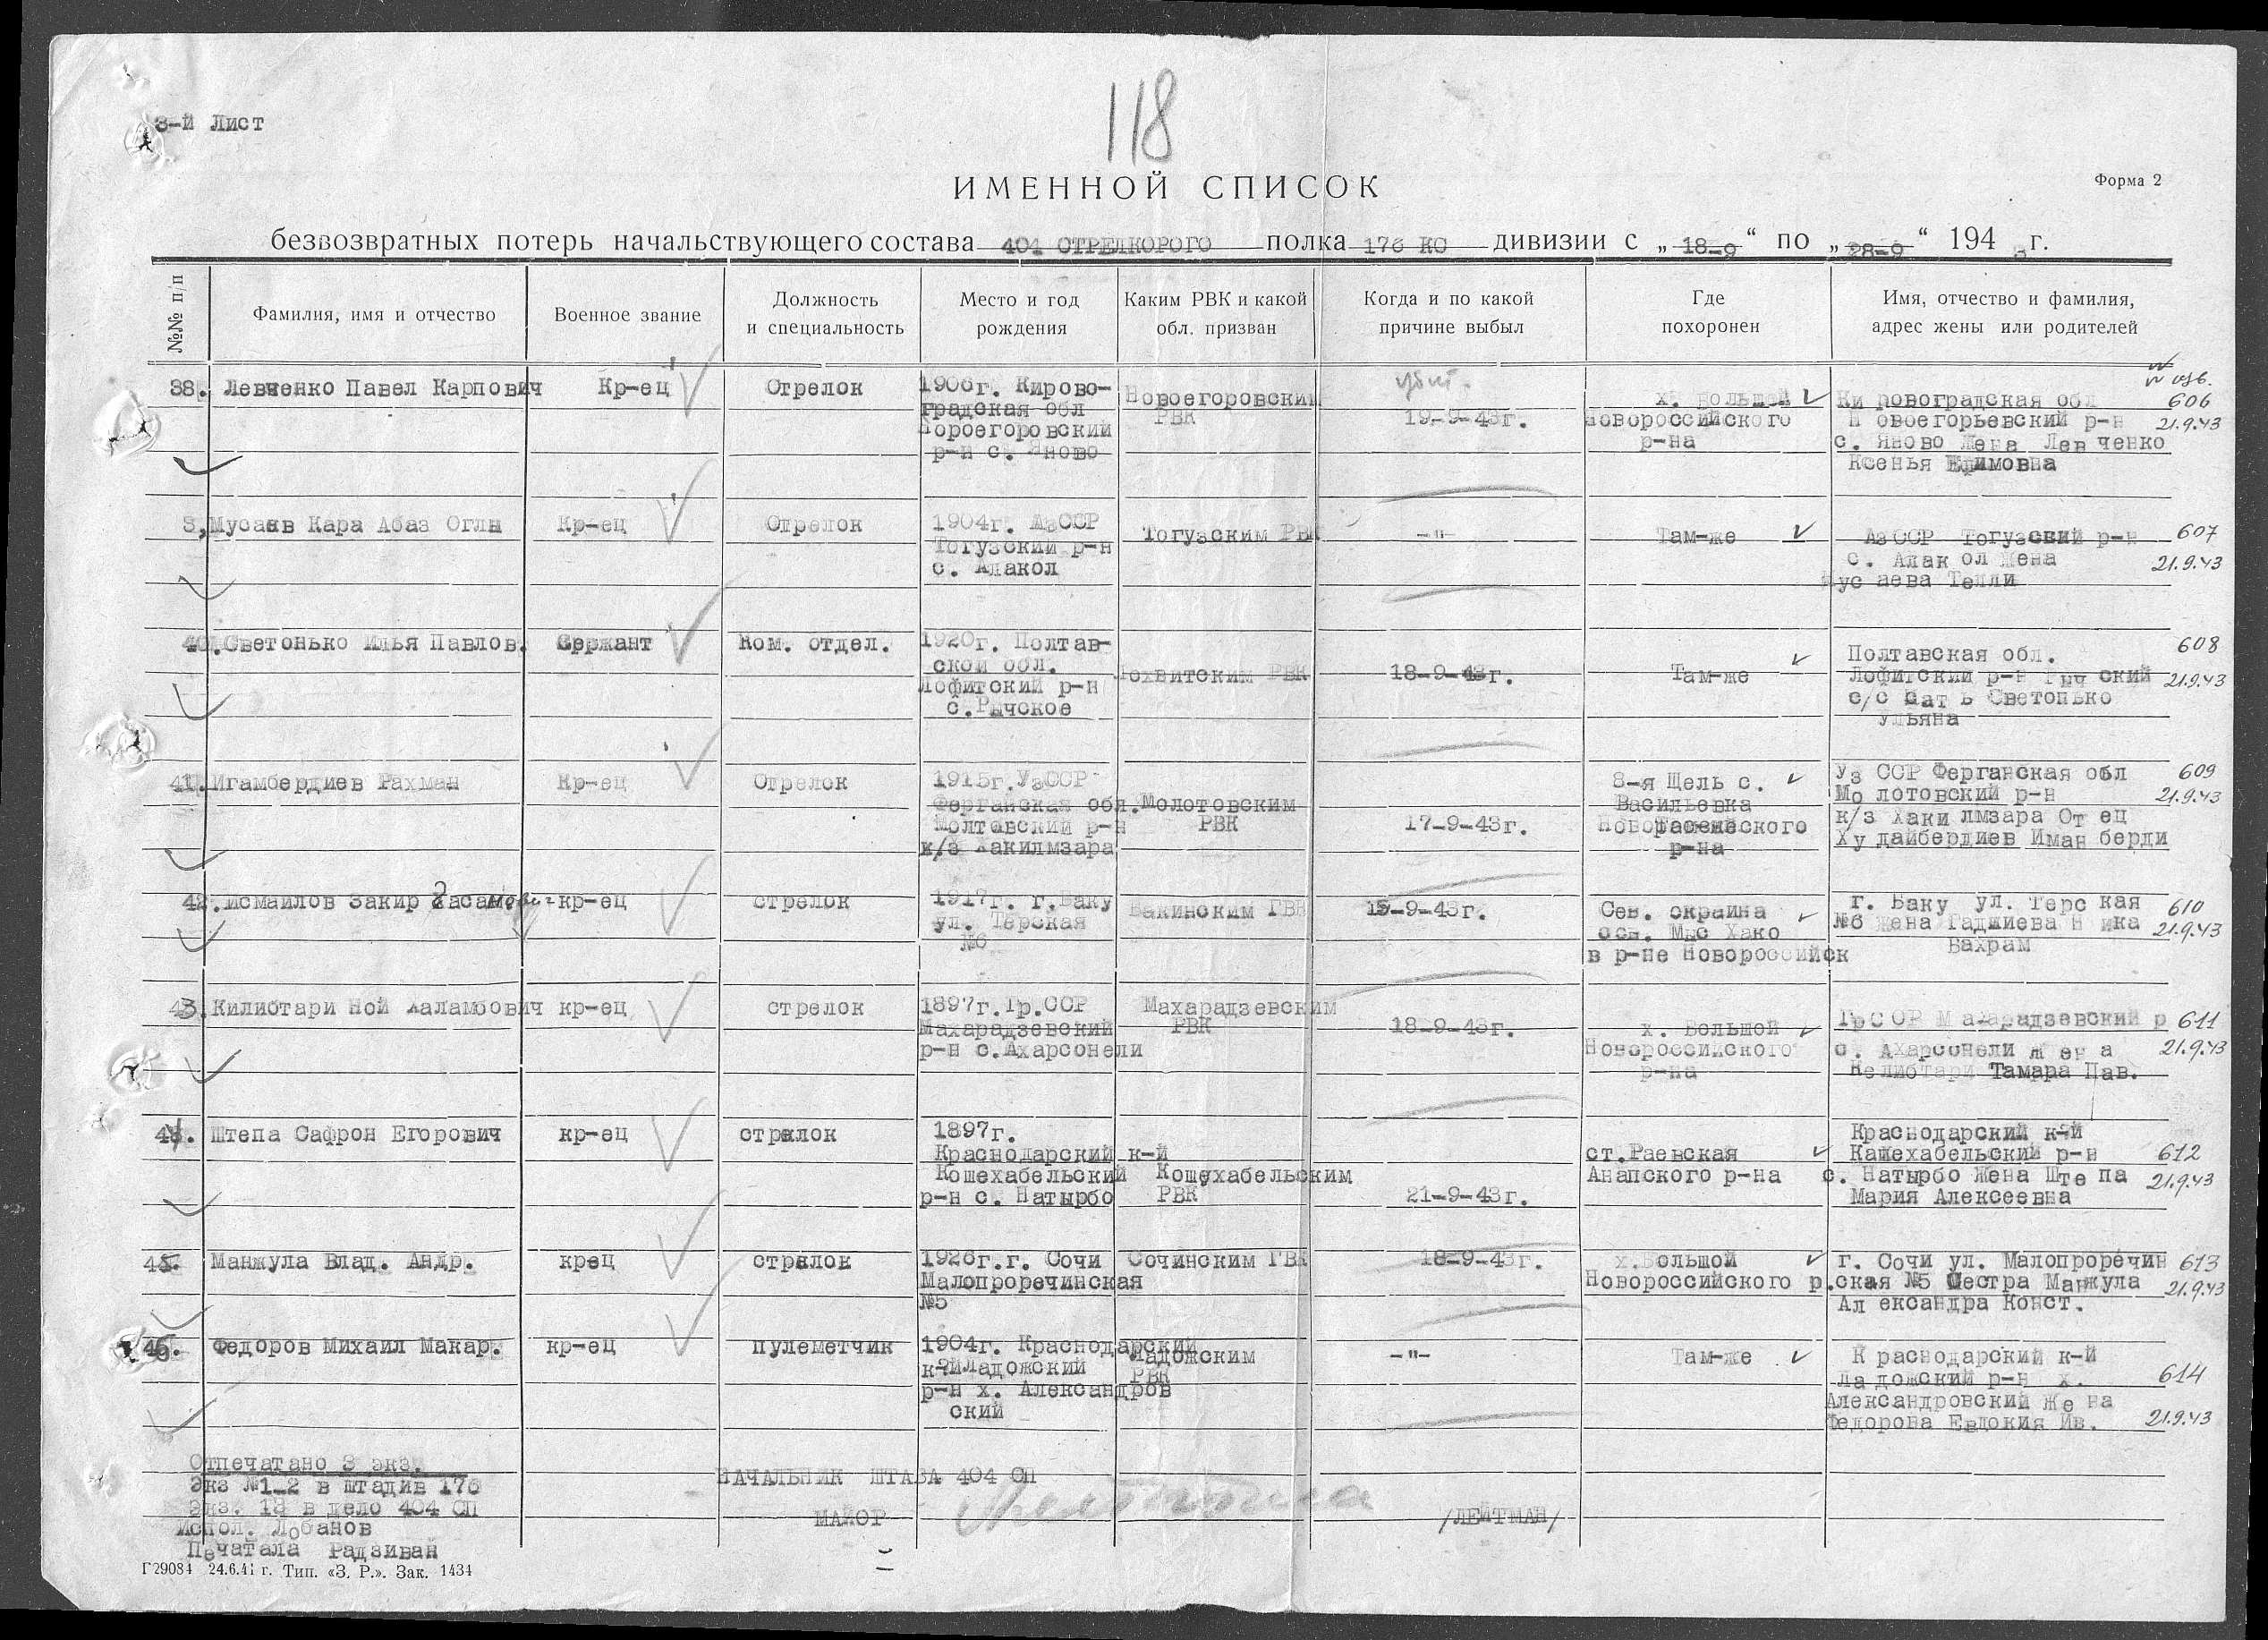 3-й Лист
118
ИМЕННОЙ СПИСОК
Форма 2
безвозвратных потерь начальствующего состава 404 СТРЕЛКОРОГО полка 176 КС дивизии с „ 18-9 “ по „ 28-9 “ 194 3 г.
№№ п/п
Фамилия, имя и отчество
Военное звание
Должность и специальность
Место и год рождения
Каким РВК и какой обл. призван
Когда и по какой причине выбыл
Где похоронен
Имя, отчество и фамилия, адрес жены или родителей
38. Левченко Павел Карпович
Кр-ец
Стрелок
1906г. Кирово-
градская обл
Нороегоровский
р-н с. Яново
Новоегоровским
РВК
убит.
19-9-43г.
х. Большой
Новороссийского
р-на
Ки ровоградская обл
Н овоегорьевский р-н
с. Яново Жена Лев ченко
Ксенья Ефимовна
изв.
606
21.9.43
3, Мусаев Кара Абаз Оглы
Кр-ец
Стрелок
1904г. АзССР
Тогузский р-н
с. Алакол
Тогузским РВК
-"-
Там-же
АзССР Тогузский р-н
с. Алак ол Жена
Мус аева Телли
607
21.9.43
40. Светонько Илья Павлов.
Сержант
Ком. отдел.
1920г. Полтав-
ской обл.
Лофитский р-н
с.Рычское
Лохвитским РВК
18-9-43г.
Там-же
Полтавская обл.
Лофитский р-н Рыч ский
с/с Мат ь Светонько
Ульяна
608
21.9.43
41. Игамбердиев Рахман
Кр-ец
Стрелок
1915г.УзССР
Ферганская обл.
Молтовский р-н
к/з Хакилмзара
Молотовским
РВК
17-9-43г.
8-я Щель с.
Васильевка
Новороссийского
р-на
Уз ССР Ферганская обл
Мо лотовский р-н
к/з Хаки лмзара От ец
Ху дайбердиев Иман берди
609
21.9.43
42. Исмаилов Закир Гасамович
кр-ец
стрелок
1917г. г.Баку
ул. Терская
№6
Бакинским ГВК
15-9-43г.
Сев. окраина
осн. Мыс Хако
в р-не Новороссийск
г. Баку ул. Терс кая
№6 Жена Гаджиева Н ика
Бахрам
610
21.9.43
43. Килиbтари Ной Халамбович
кр-ец
стрелок
1897г.Гр.ССР
Махарадзевский
р-н с.Ахарсонели
Махарадзевским
РВК
18-9-43г.
х. Большой
Новороссийского
р-на
ГрССР Махарадзевский р
с. Ахарсонели Ж ен а
Келибтари Тамара Пав.
611
21.9.43
44. Штепа Сафрон Егорович
кр-ец
стрелок
1897г.
Краснодарский к-й
Кошехабельский
р-н с. Натырбо
Кошехабельским
РВК
21-9-43г.
ст.Раевская
Анапского р-на
Краснодарский к-й
Кашехабельский р-н
с. Натырбо Жена Ште па
Мария Алексеевна
612
21.9.43
45. Манжула Влад. Андр.
крец
стрелок
1926г.г. Сочи
Малопроречинская
№5
Сочинским ГВК
18-9-43г.
х.Большой
Новороссийского р.
г. Сочи ул. Малопроречин
ская №5 Сестра Манжула
Ал ександра Конст.
613
21.9.43
46. Федоров Михаил Макар.
кр-ец
пулеметчик
1904г. Краснодарский
к-й Ладожский
р-н х. Александров
ский
Ладожским
РВК
-"-
Там-же
К раснодарский к-й
Ла дожский р-н х.
Александровский Же на
Федорова Евдокия Ив.
614
21.9.43
Отпечатано 3 экз.
Экз №1-2 в штадив 176
Экз. 13 в дело 404 СП
Испол. Лобанов
Печатала Радзиван
НАЧАЛЬНИК ШТАБА 404 СП
МАЙОР
/ЛЕЙТМАН/
Г29084 24.6.41 г. Тип. «З. Р.». Зак. 1434